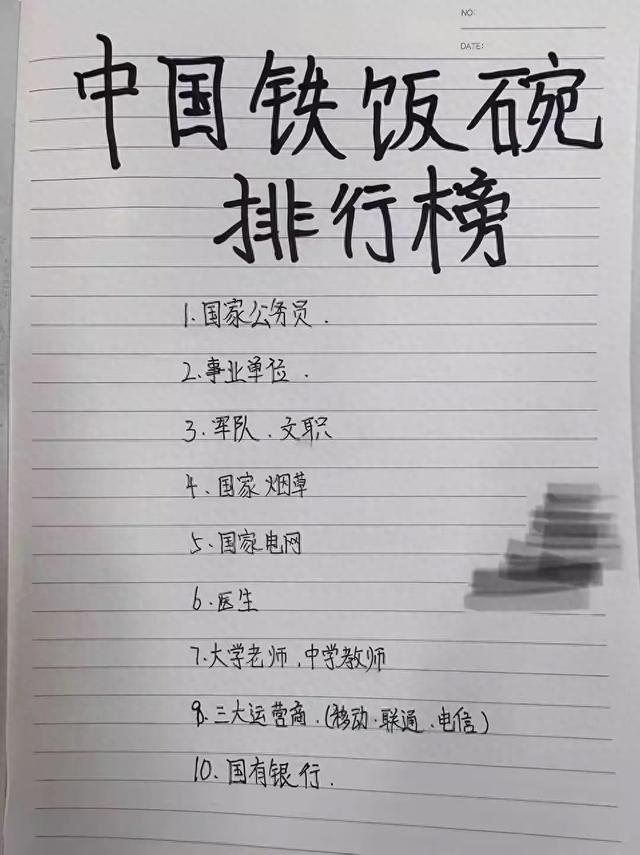 NO:
DATE:
中国铁饭碗
排行榜
1.国家公务员.
2.事业单位.
3.军队、文职
4、国家烟草
5、国家电网
6、医生
7.大学老师,中学教师
8.三大运营商.(移动·联通、电信)
10、国有银行.